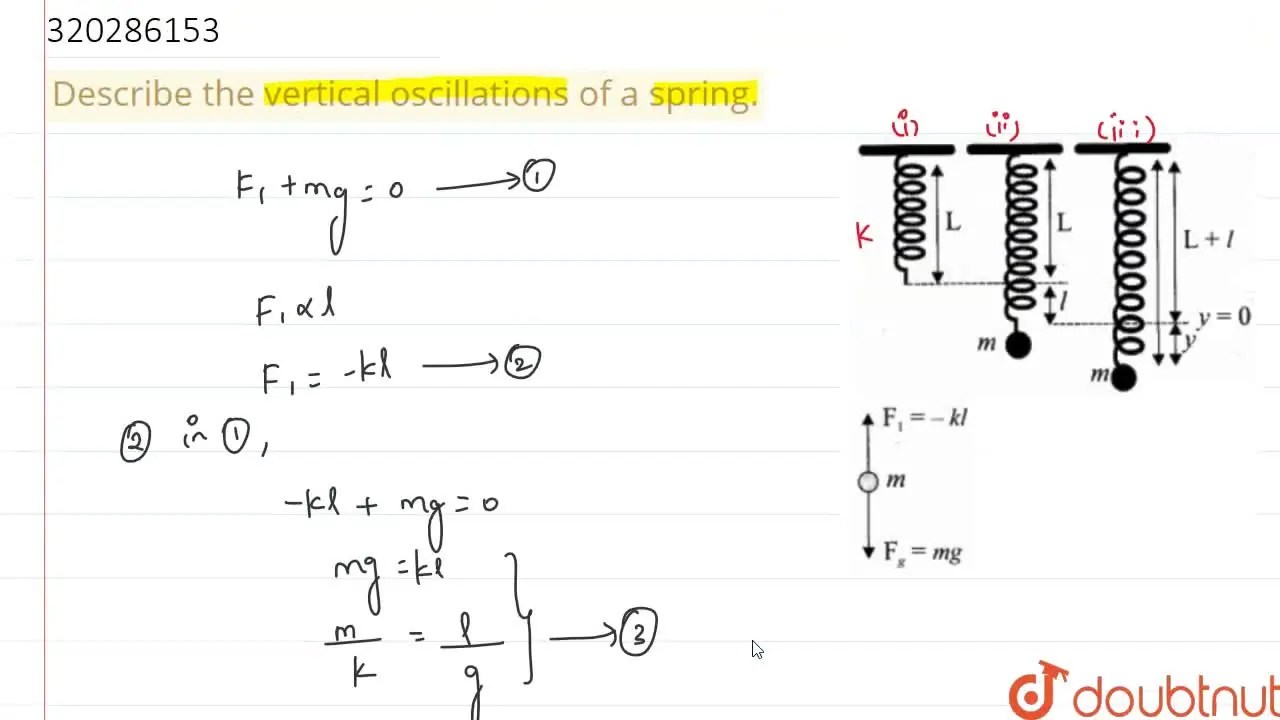 320286153
Describe the vertical oscillations of a spring.
F₁ + mg = 0 → ①
F₁ ∝ l
F₁ = -kl → ②
② in ①,
-kl + mg = 0
mg = kl
m/k = l/g } → ③
(i) (ii) (iii)
K
L
L
L + l
l
y = 0
y
m
m
F₁ = – kl
m
F_g = mg
doubtnut